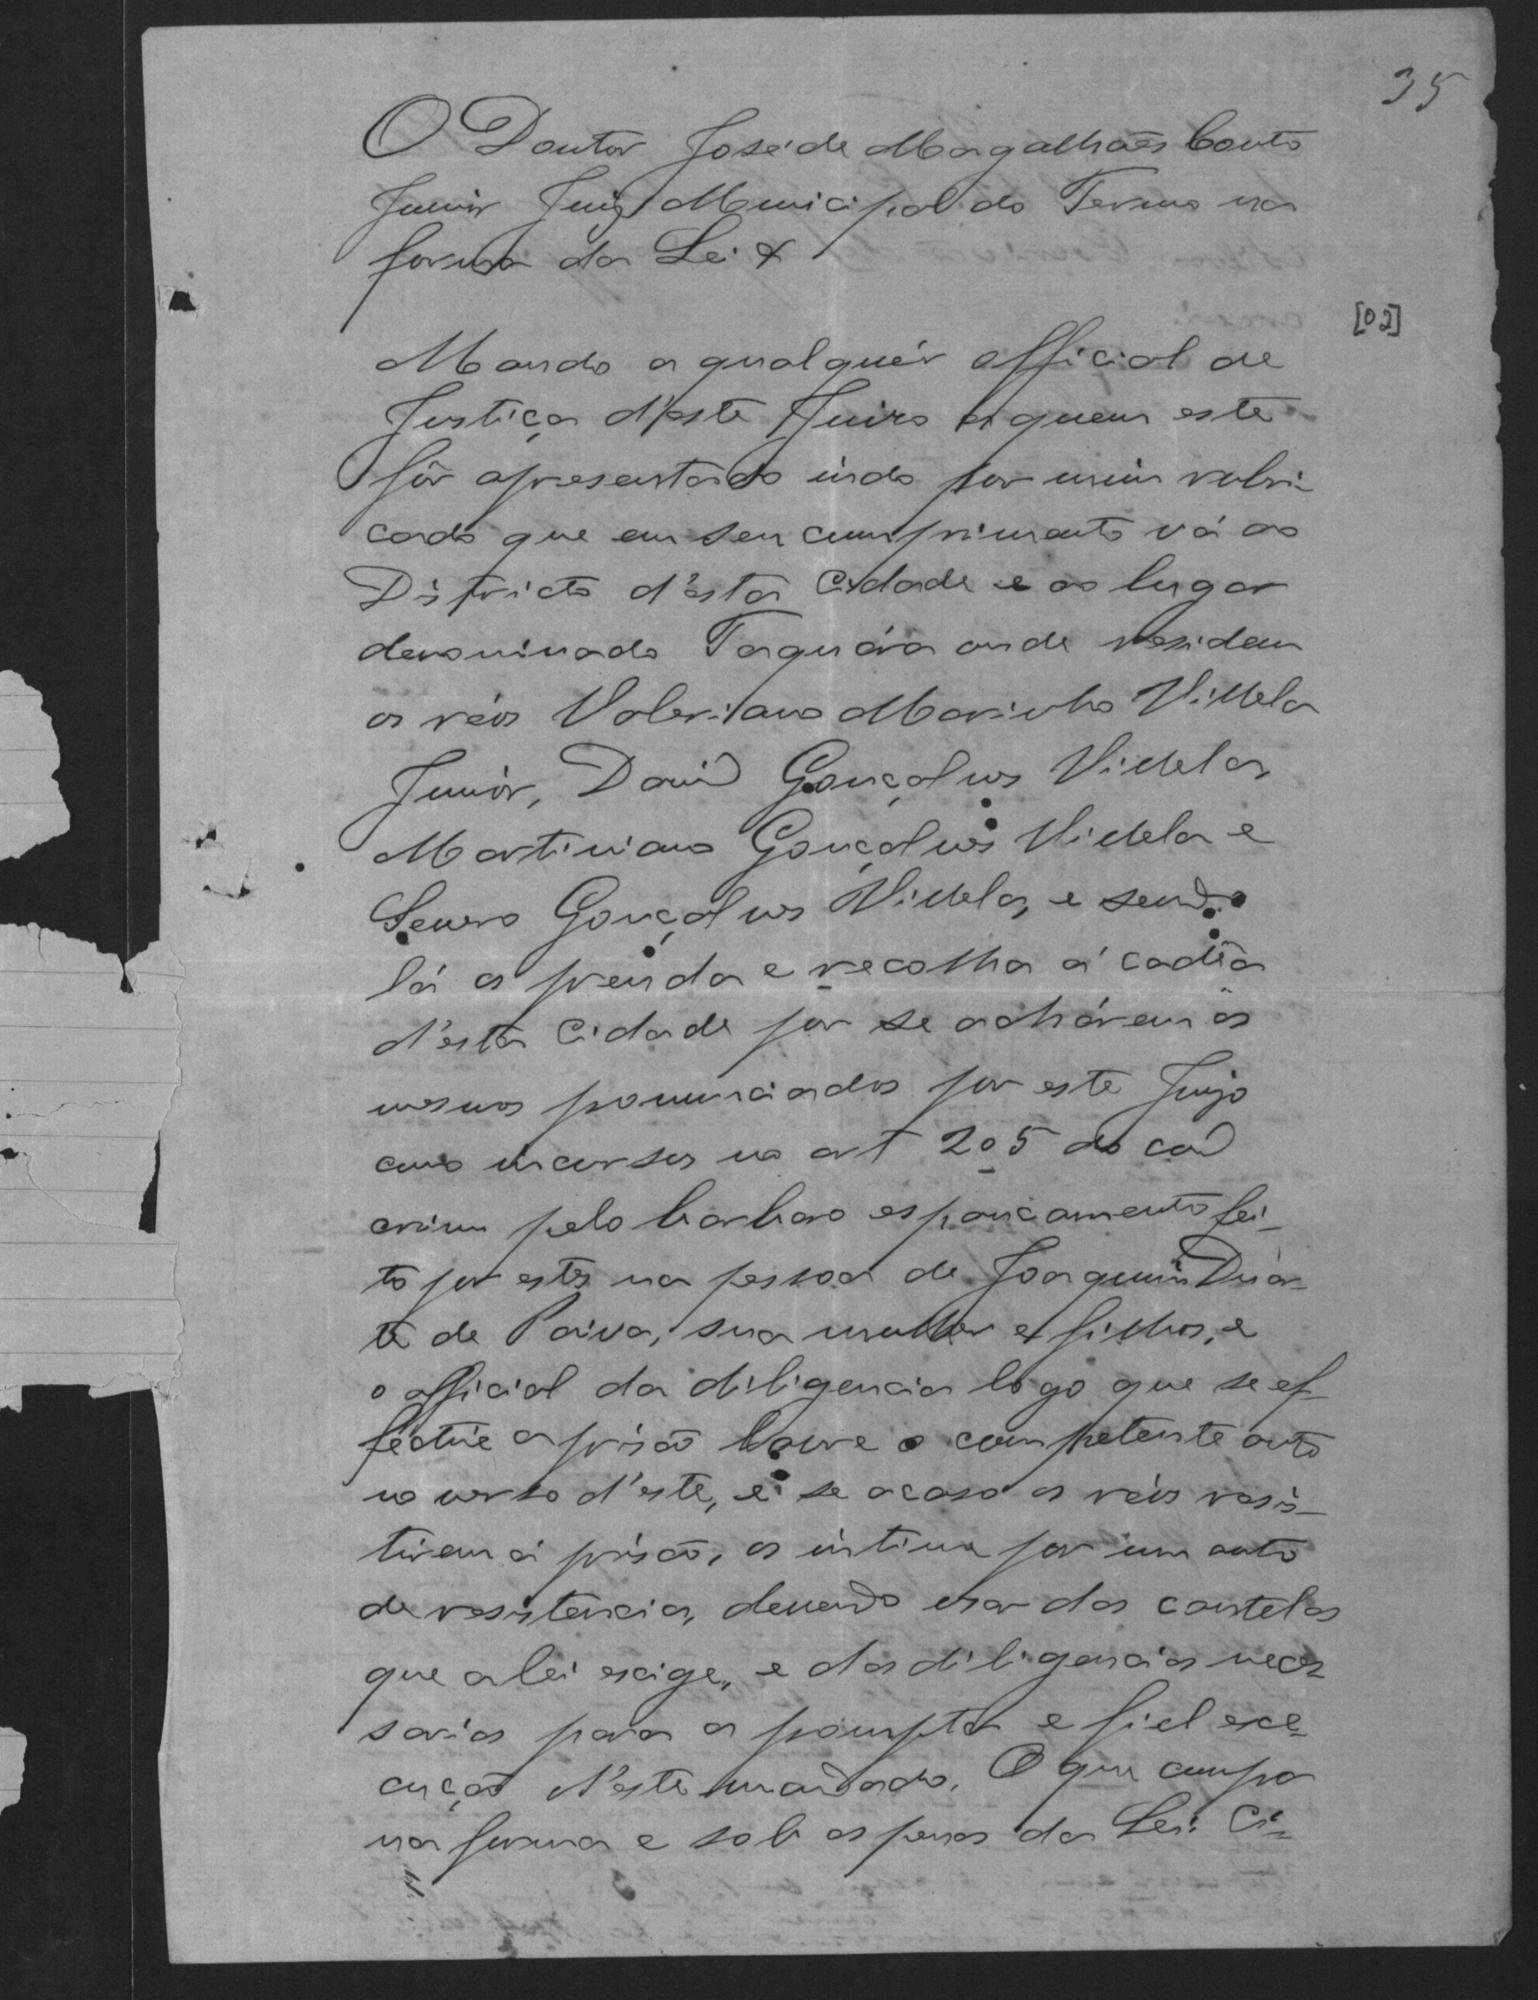 35
O Doutor José de Magalhães Couto
Junior Juiz Municipal do Termo na
forma da Lei &
[02]
Mando a qualquér official de
Justiça d'este Juizo a quem este
fôr apresentado indo por mim rubri-
cado que em seu cumprimento vá ao
Districto d'esta Cidade e ao lugar
denominado Taquára onde residem
os réos Valeriano Marinho Villela
Junior, David Gonçalves Villela,
Martiniano Gonçalves Villela e
Severo Gonçalves Villela, e sendo
lá os prenda e recolha á cadêa
d'esta Cidade por se achárem os
mesmos pronunciados por este Juizo
como incursos no art 205 do cod
crim pelo barbaro espancamento fei-
to por estes na pessoa de Joaquim Duar-
te de Paiva, sua mulher e filhos, e
o official da diligencia logo que se ef-
fectue a prisão lavre o competente auto
no verso d'este, e se acaso os réos resis-
tirem á prisão, os intime por um auto
de resistencia, devendo usar das cautelas
que a lei exige, e das diligencias neces
sarias para a prompta e fiel exe-
cução d'este mandado. O que cumpra
na forma e sob as penas da Lei. Ci-